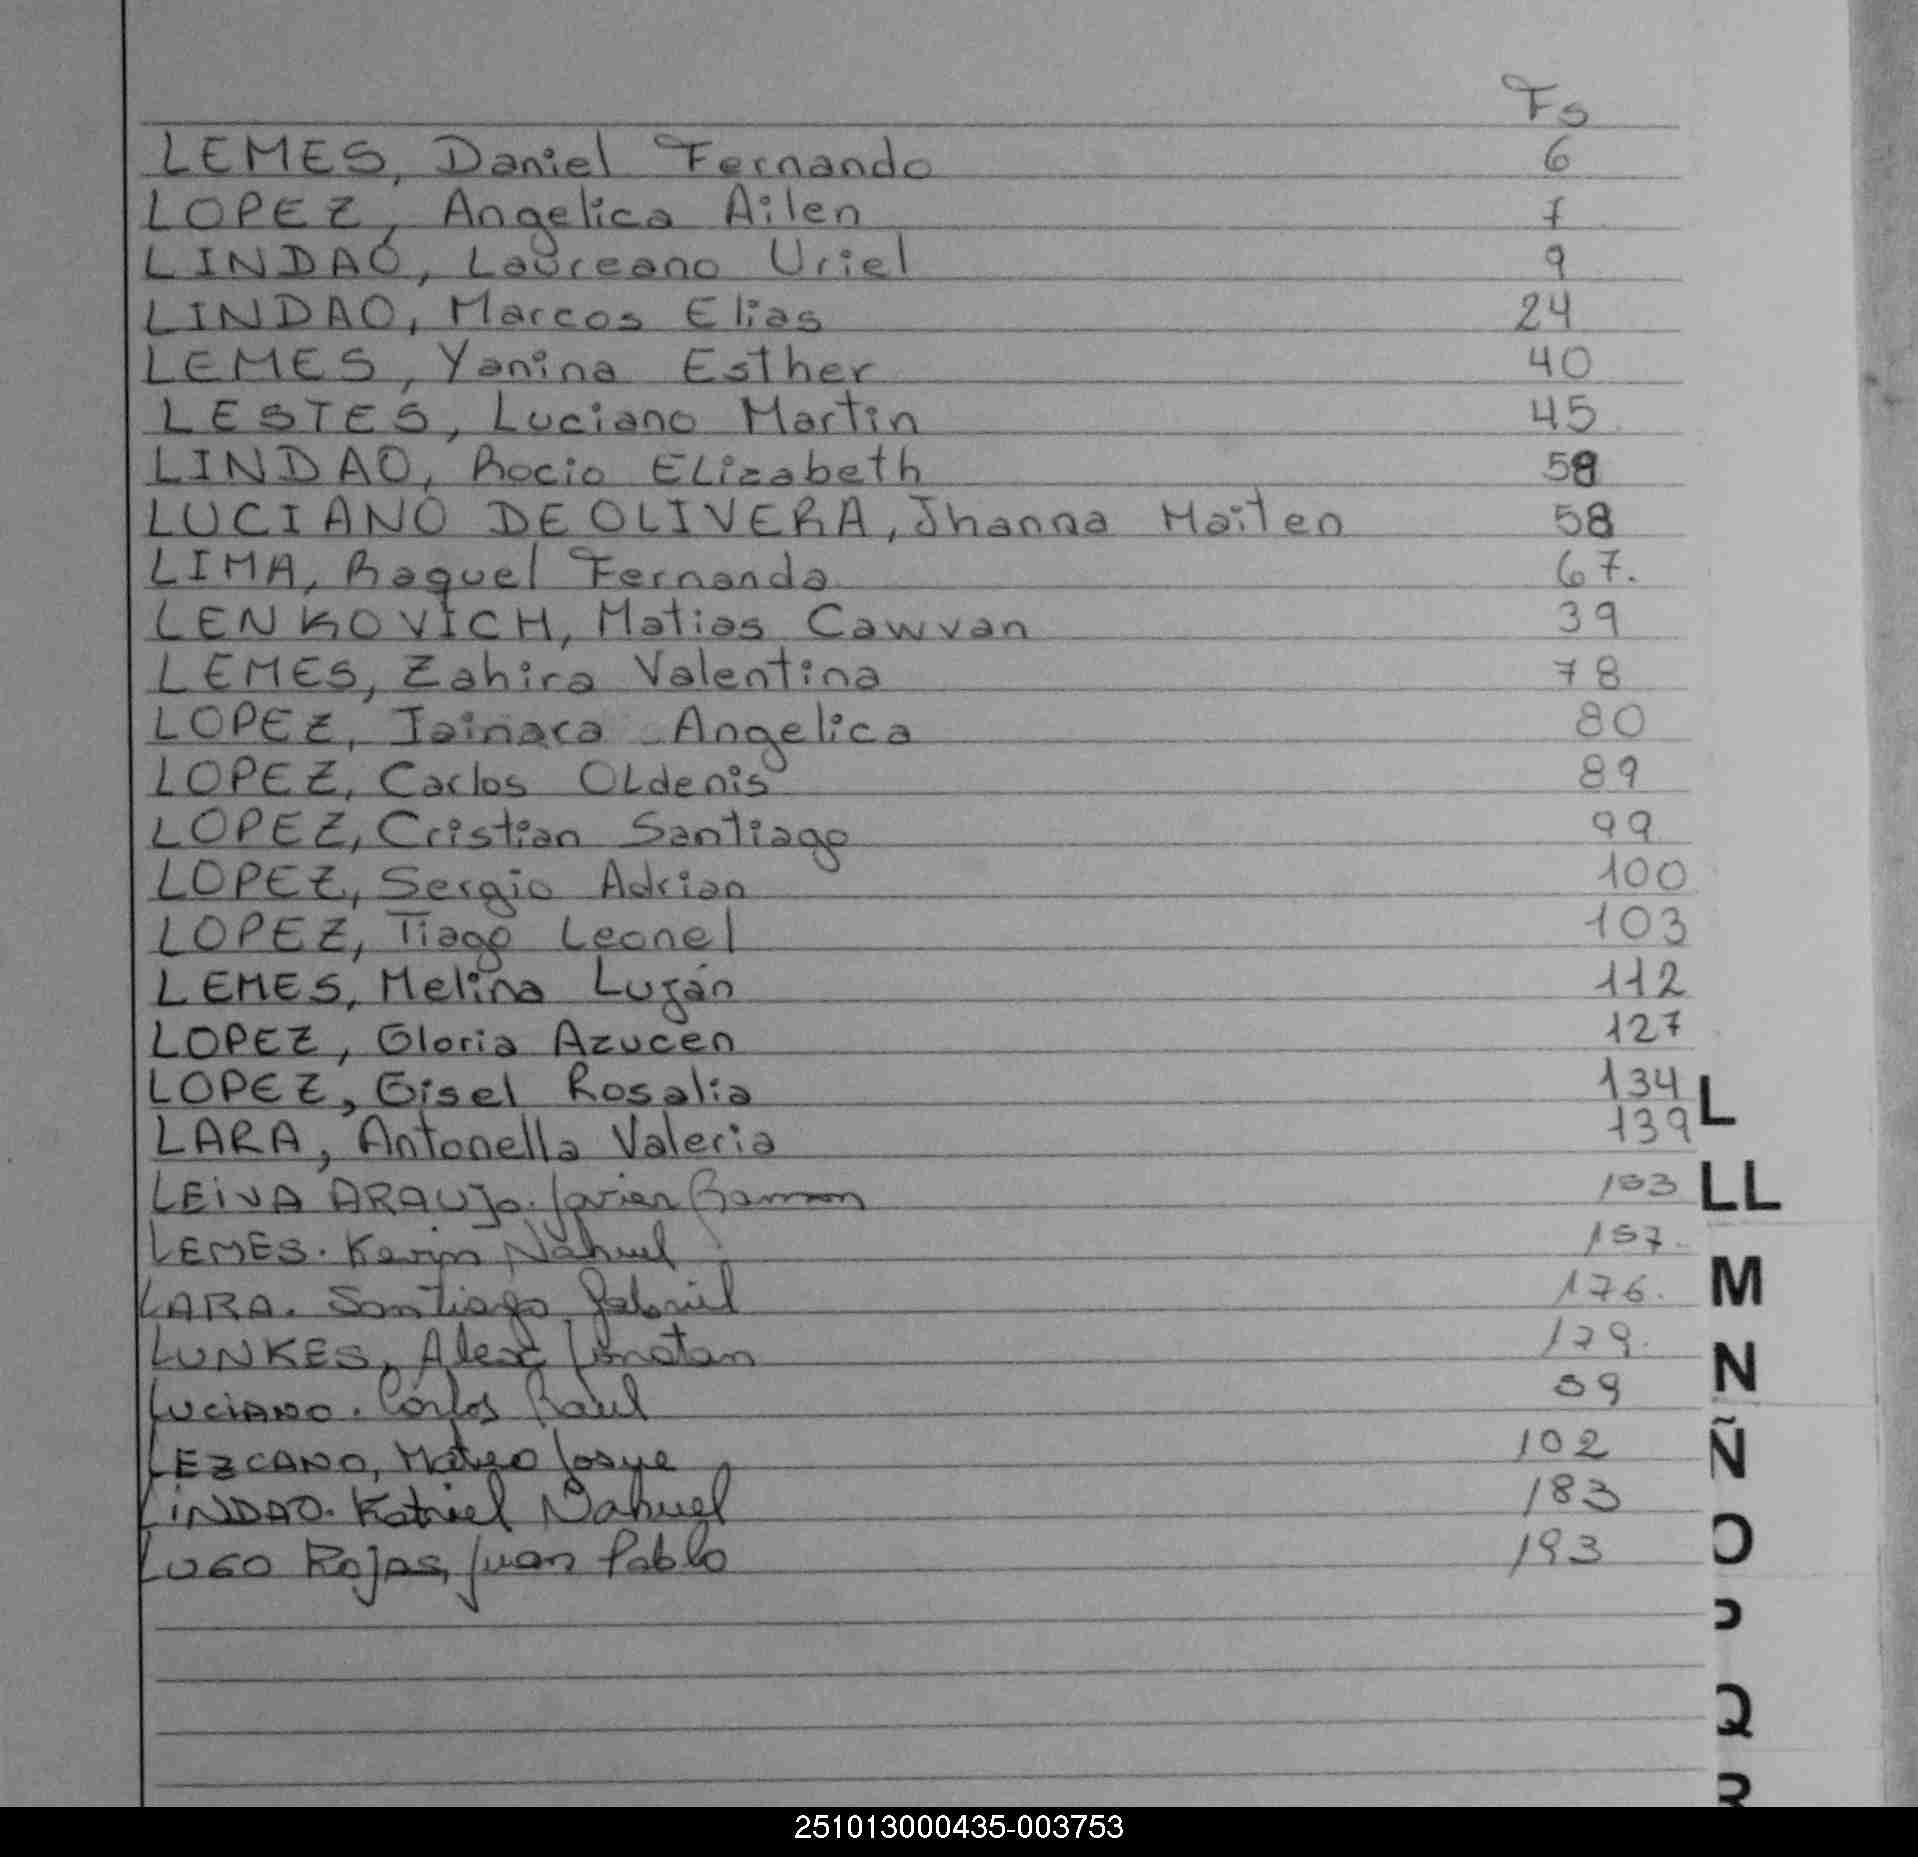 Fs
LEMES, Daniel Fernando 6
LOPEZ, Angelica Ailen 7
LINDAO, Laureano Uriel 9
LINDAO, Marcos Elias 24
LEMES, Yanina Esther 40
LESTES, Luciano Martin 45
LINDAO, Rocio ELizabeth 58
LUCIANO DE OLIVERA, Jhanna Maiten 58
LIMA, Raquel Fernanda 67.
LENKOVICH, Matias Cawvan 39
LEMES, Zahira Valentina 78
LOPEZ, Iainara Angelica 80
LOPEZ, Carlos OLdenis 89
LOPEZ, Cristian Santiago 99
LOPEZ, Sergio Adrian 100
LOPEZ, Tiago Leonel 103
LEMES, Melina Luján 112
LOPEZ, Gloria Azucen 127
LOPEZ, Gisel Rosalia 134
LARA, Antonella Valeria 139
LEIVA ARAUJO. Javier Ramon 153
LEMES. Kevin Nahuel 157.
LARA. Santiago Gabriel 176.
LUNKES, Alex Jonatan 179.
LUCIANO. Carlos Raul 59
LEZCANO, Mateo Josue 102
LINDAO. Katriel Nahuel 183
LUGO Rojas, Juan Pablo 193
L
LL
M
N
Ñ
O
P
Q
R
251013000435-003753